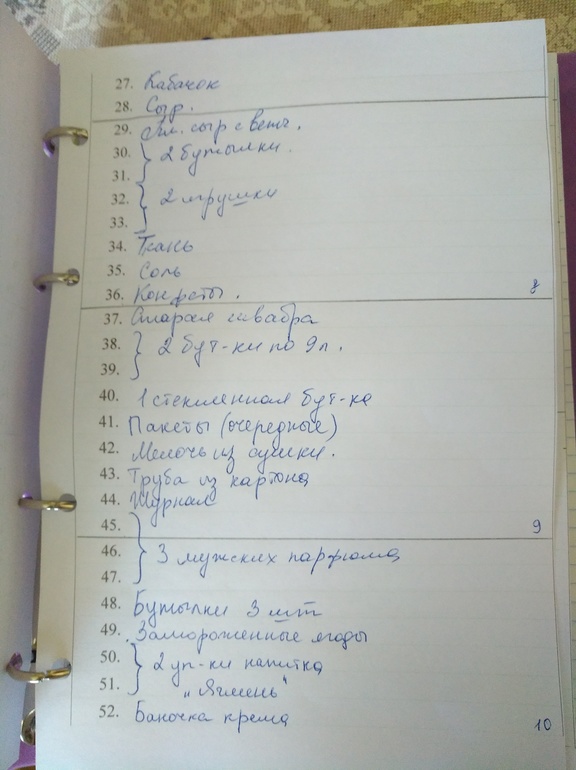 27. Кабачок
28. Сыр.
29. Пл. сыр с ветч.
30. } 2 бутылки.
31.
32. } 2 игрушки
33.
34. Ткань
35. Соль
36. Конфеты. 8
37. Старая швабра
38. } 2 бут-ки по 9л.
39.
40. 1 стеклянная бут-ка
41. Пакеты (очередные)
42. Мелочь из сушки.
43. Труба из картона
44. Журнал
45. 9
46. } 3 мужских парфюма
47.
48. Бутылки 3 шт
49. Замороженные ягоды
50. } 2 уп-ки напитка
51. "Ячмень"
52. Баночка крема 10